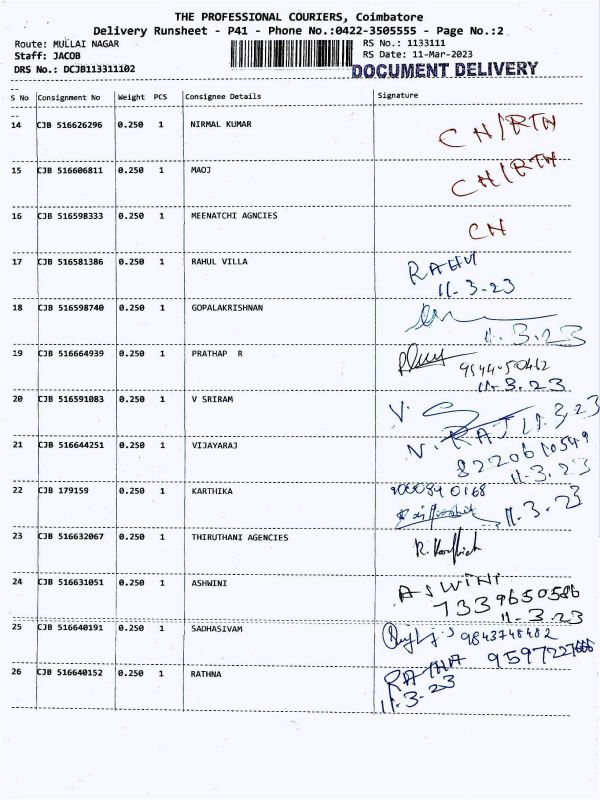 THE PROFESSIONAL COURIERS, Coimbatore
Delivery Runsheet - P41 - Phone No.:0422-3505555 - Page No.:2
Route: MULLAI NAGAR RS No.: 1133111
Staff: JACOB RS Date: 11-Mar-2023
DRS No.: DCJB113311102 DOCUMENT DELIVERY
S No Consignment No Weight PCS Consignee Details Signature
14 CJB 516626296 0.250 1 NIRMAL KUMAR CN/RTN
15 CJB 516606811 0.250 1 MAOJ CN/RTN
16 CJB 516598333 0.250 1 MEENATCHI AGNCIES CN
17 CJB 516581386 0.250 1 RAHUL VILLA RAHUL
11-3-23
18 CJB 516598740 0.250 1 GOPALAKRISHNAN
11.3.23
19 CJB 516664939 0.250 1 PRATHAP R
11.3.23
20 CJB 516591083 0.250 1 V SRIRAM V. S 11.3.23
21 CJB 516644251 0.250 1 VIJAYARAJ V. RAJ
8220610549
11.3.23
22 CJB 179159 0.250 1 KARTHIKA
11.3.23
23 CJB 516632067 0.250 1 THIRUTHANI AGENCIES
24 CJB 516631051 0.250 1 ASHWINI ASWINI
7339650586
11-3.23
25 CJB 516640191 0.250 1 SADHASIVAM 9843748482
26 CJB 516640152 0.250 1 RATHNA RATHA
11-3-23